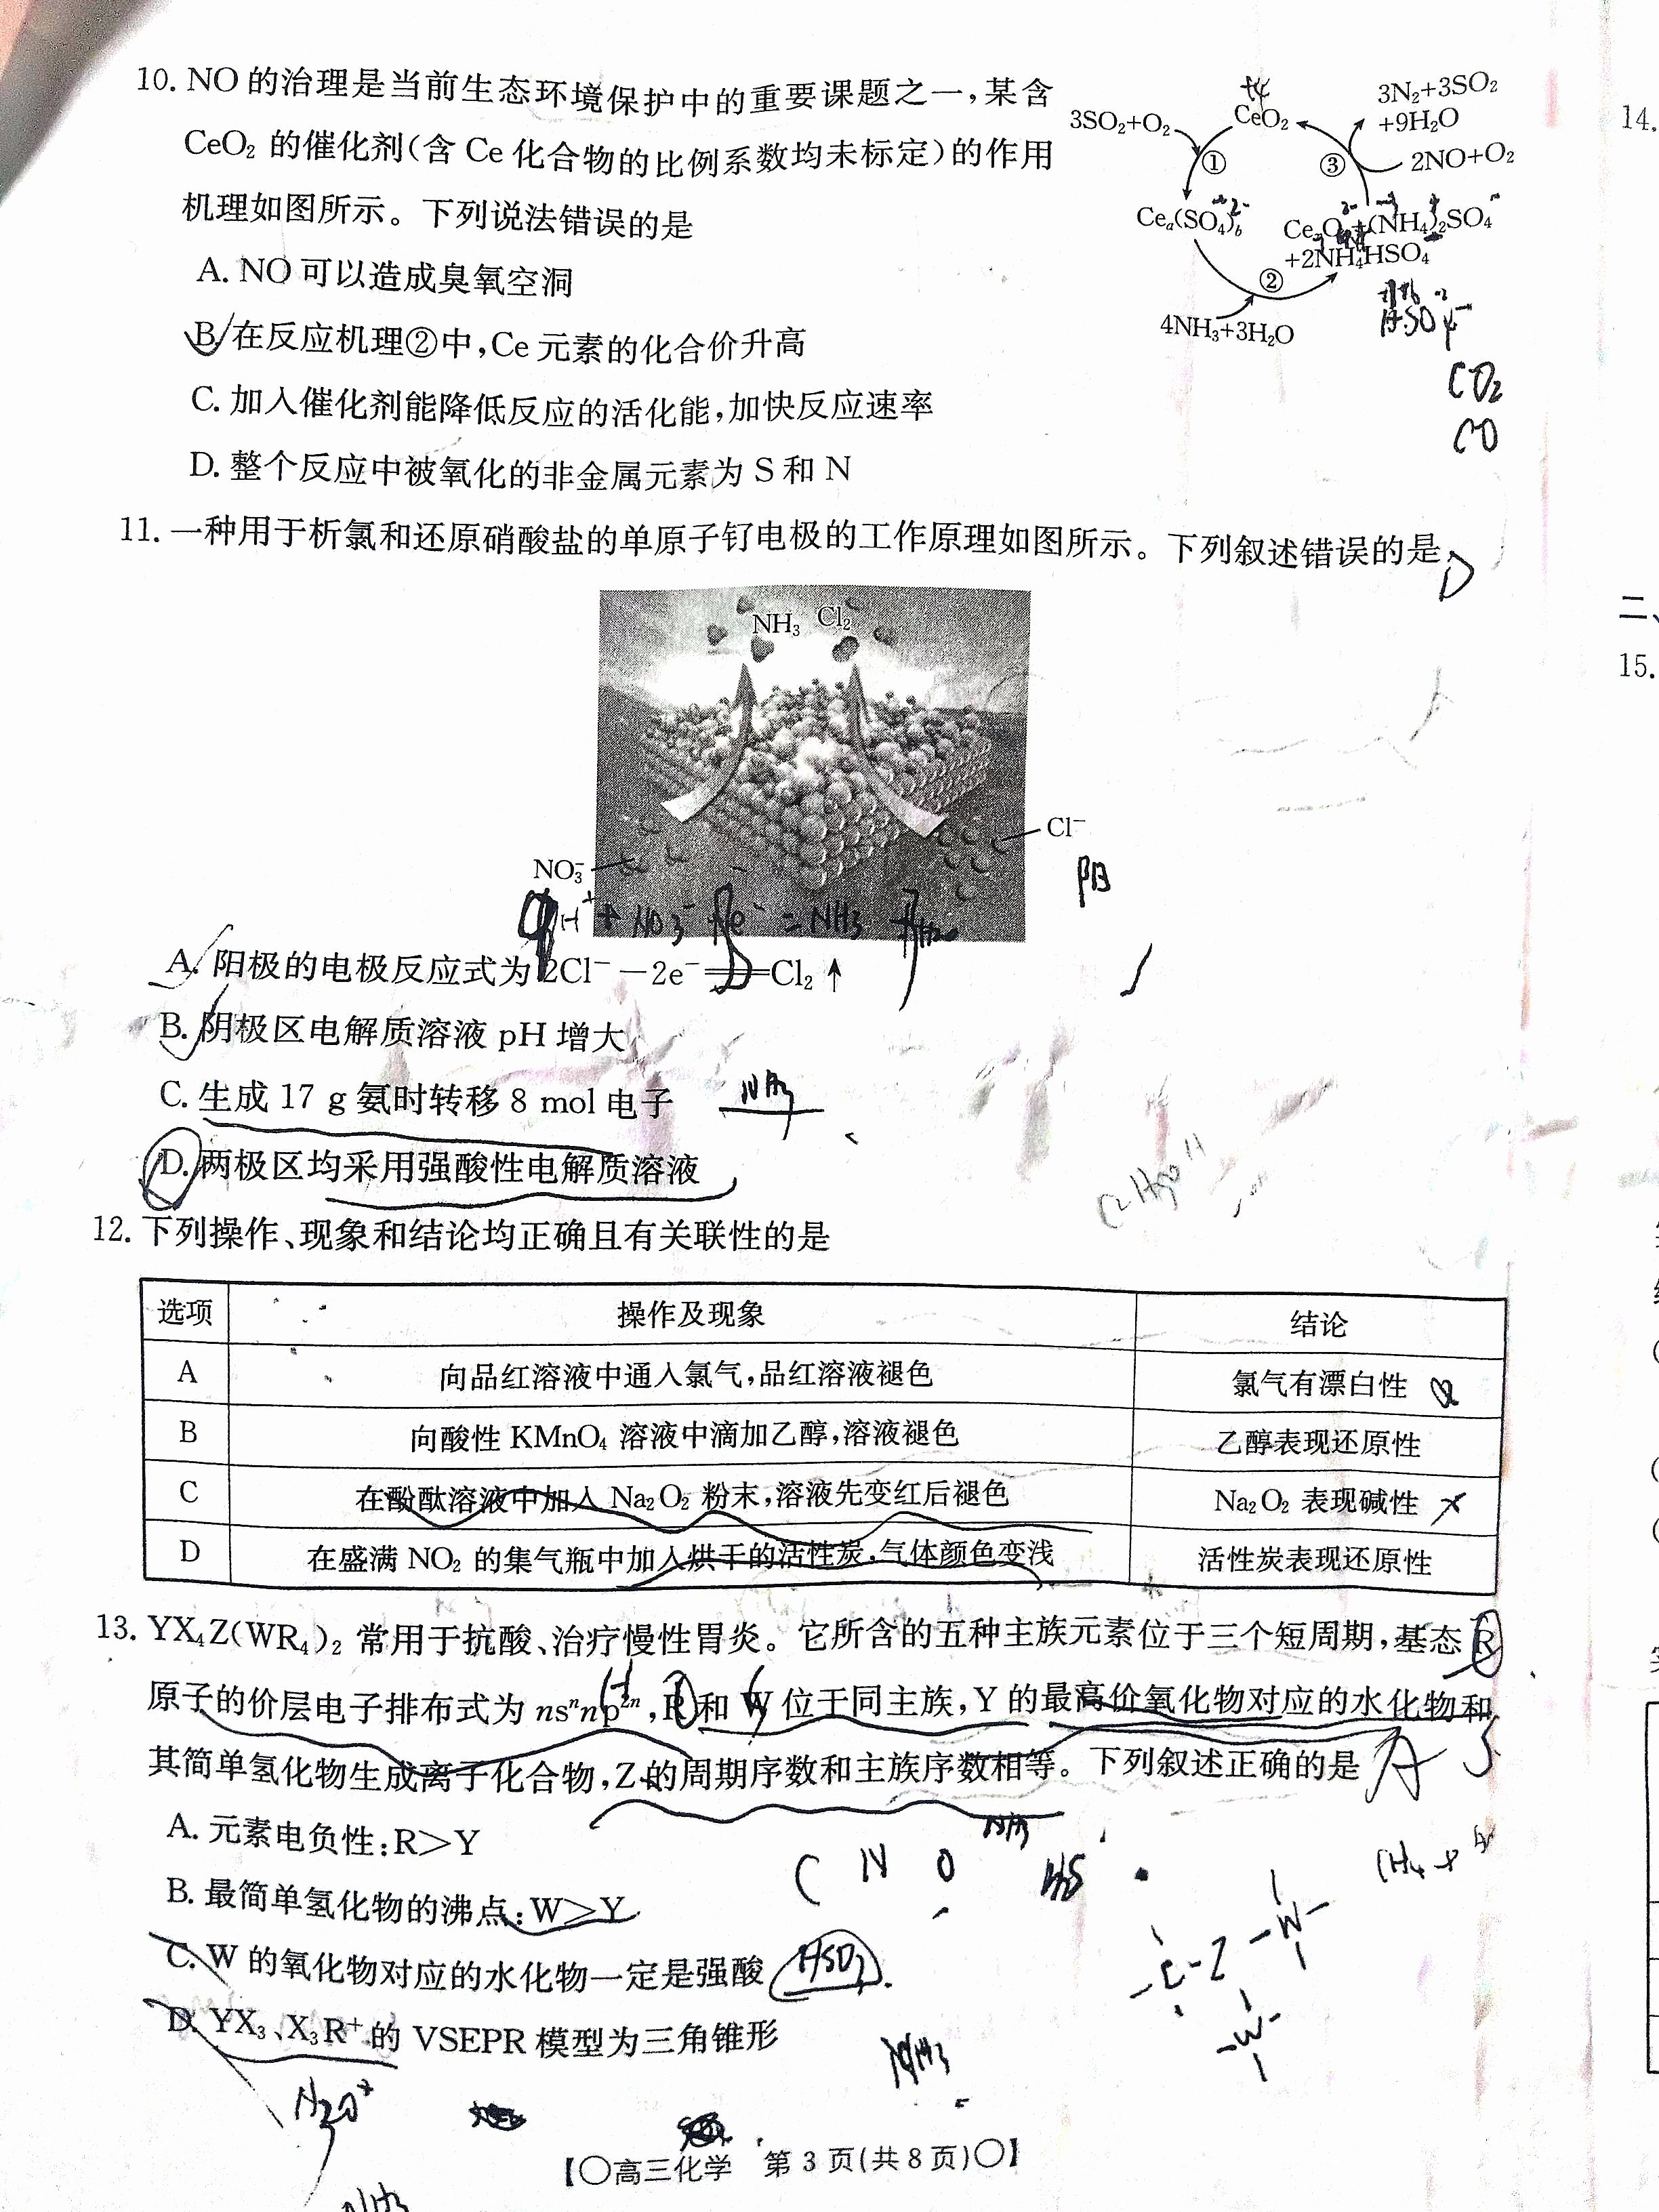 10. NO 的治理是当前生态环境保护中的重要课题之一，某含
CeO₂ 的催化剂(含 Ce 化合物的比例系数均未标定)的作用
机理如图所示。下列说法错误的是
3SO₂+O₂
+4
CeO₂
3N₂+3SO₂
+9H₂O
①
③
2NO+O₂
Ceₐ(SO₄)b
(NH₄)₂SO₄
+2NH₄HSO₄
②
4NH₃+3H₂O
HSO₄⁻
CO₂
CO
A. NO 可以造成臭氧空洞
B. 在反应机理②中，Ce 元素的化合价升高
C. 加入催化剂能降低反应的活化能，加快反应速率
D. 整个反应中被氧化的非金属元素为 S 和 N
11. 一种用于析氯和还原硝酸盐的单原子钌电极的工作原理如图所示。下列叙述错误的是
D
NH₃ Cl₂
Cl⁻
NO₃⁻
阳
A. 阳极的电极反应式为 2Cl⁻－2e⁻══Cl₂↑
B. 阴极区电解质溶液 pH 增大
C. 生成 17 g 氨时转移 8 mol 电子
NH₃
D. 两极区均采用强酸性电解质溶液
12. 下列操作、现象和结论均正确且有关联性的是
选项 操作及现象 结论
A 向品红溶液中通入氯气，品红溶液褪色 氯气有漂白性
B 向酸性 KMnO₄ 溶液中滴加乙醇，溶液褪色 乙醇表现还原性
C 在酚酞溶液中加入 Na₂O₂ 粉末，溶液先变红后褪色 Na₂O₂ 表现碱性 ×
D 在盛满 NO₂ 的集气瓶中加入烘干的活性炭，气体颜色变浅 活性炭表现还原性
13. YX₄Z(WR₄)₂ 常用于抗酸、治疗慢性胃炎。它所含的五种主族元素位于三个短周期，基态 R
原子的价层电子排布式为 nsⁿnp²ⁿ，R 和 W 位于同主族，Y 的最高价氧化物对应的水化物和
其简单氢化物生成离子化合物，Z 的周期序数和主族序数相等。下列叙述正确的是
A
S
A. 元素电负性：R>Y
C N O
NH₃
B. 最简单氢化物的沸点：W>Y
C. W 的氧化物对应的水化物一定是强酸
D. YX₃、X₃R⁺ 的 VSEPR 模型为三角锥形
H₃O⁺
NH₃
【○高三化学 第 3 页(共 8 页)○】
NH₃
14.
二、
15.